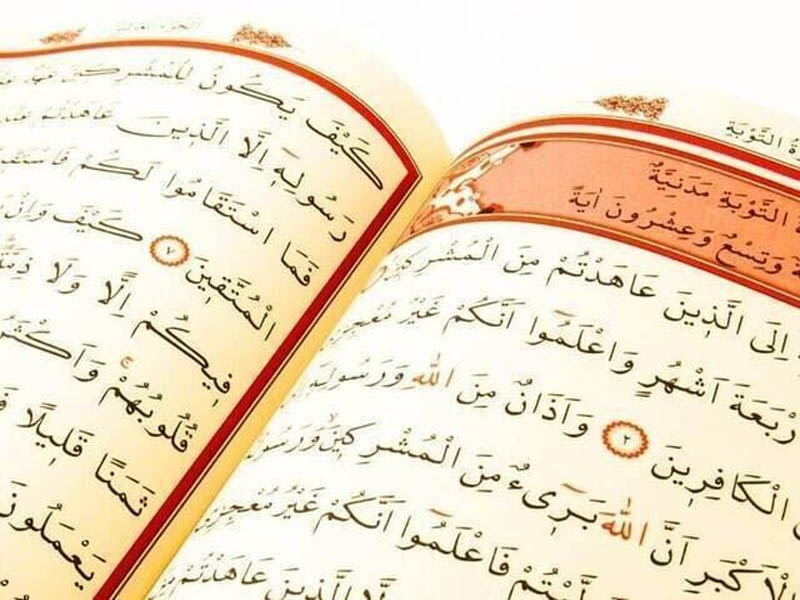 التَّوْبَةِ
التَّوْبَةِ مَدَنِيَّةٌ
وَتِسْعٌ وَعِشْرُونَ اٰيَةً
اِلَى الَّذِينَ عَاهَدْتُمْ مِنَ الْمُشْرِكِينَ
اَشْهُرٍ وَاعْلَمُوا اَنَّكُمْ غَيْرُ
الْكَافِرِينَ ٢ وَاَذَانٌ مِنَ اللّٰهِ وَرَسُولِهِ
الْاَكْبَرِ اَنَّ اللّٰهَ بَرِىءٌ مِنَ الْمُشْرِكِينَ
فَاعْلَمُوا اَنَّكُمْ غَيْرُ
الَّذِينَ عَاهَدْتُمْ
كَيْفَ يَكُونُ لِلْمُشْرِكِينَ
رَسُولِهِ اِلَّا الَّذِينَ عَاهَدْتُمْ
فَمَا اسْتَقَامُوا لَكُمْ
الْمُتَّقِينَ ٧ كَيْفَ وَاِنْ
فِيكُمْ اِلًّا وَلَا
قُلُوبُهُمْ
ثَمَنًا قَلِيلًا
يَعْمَلُونَ